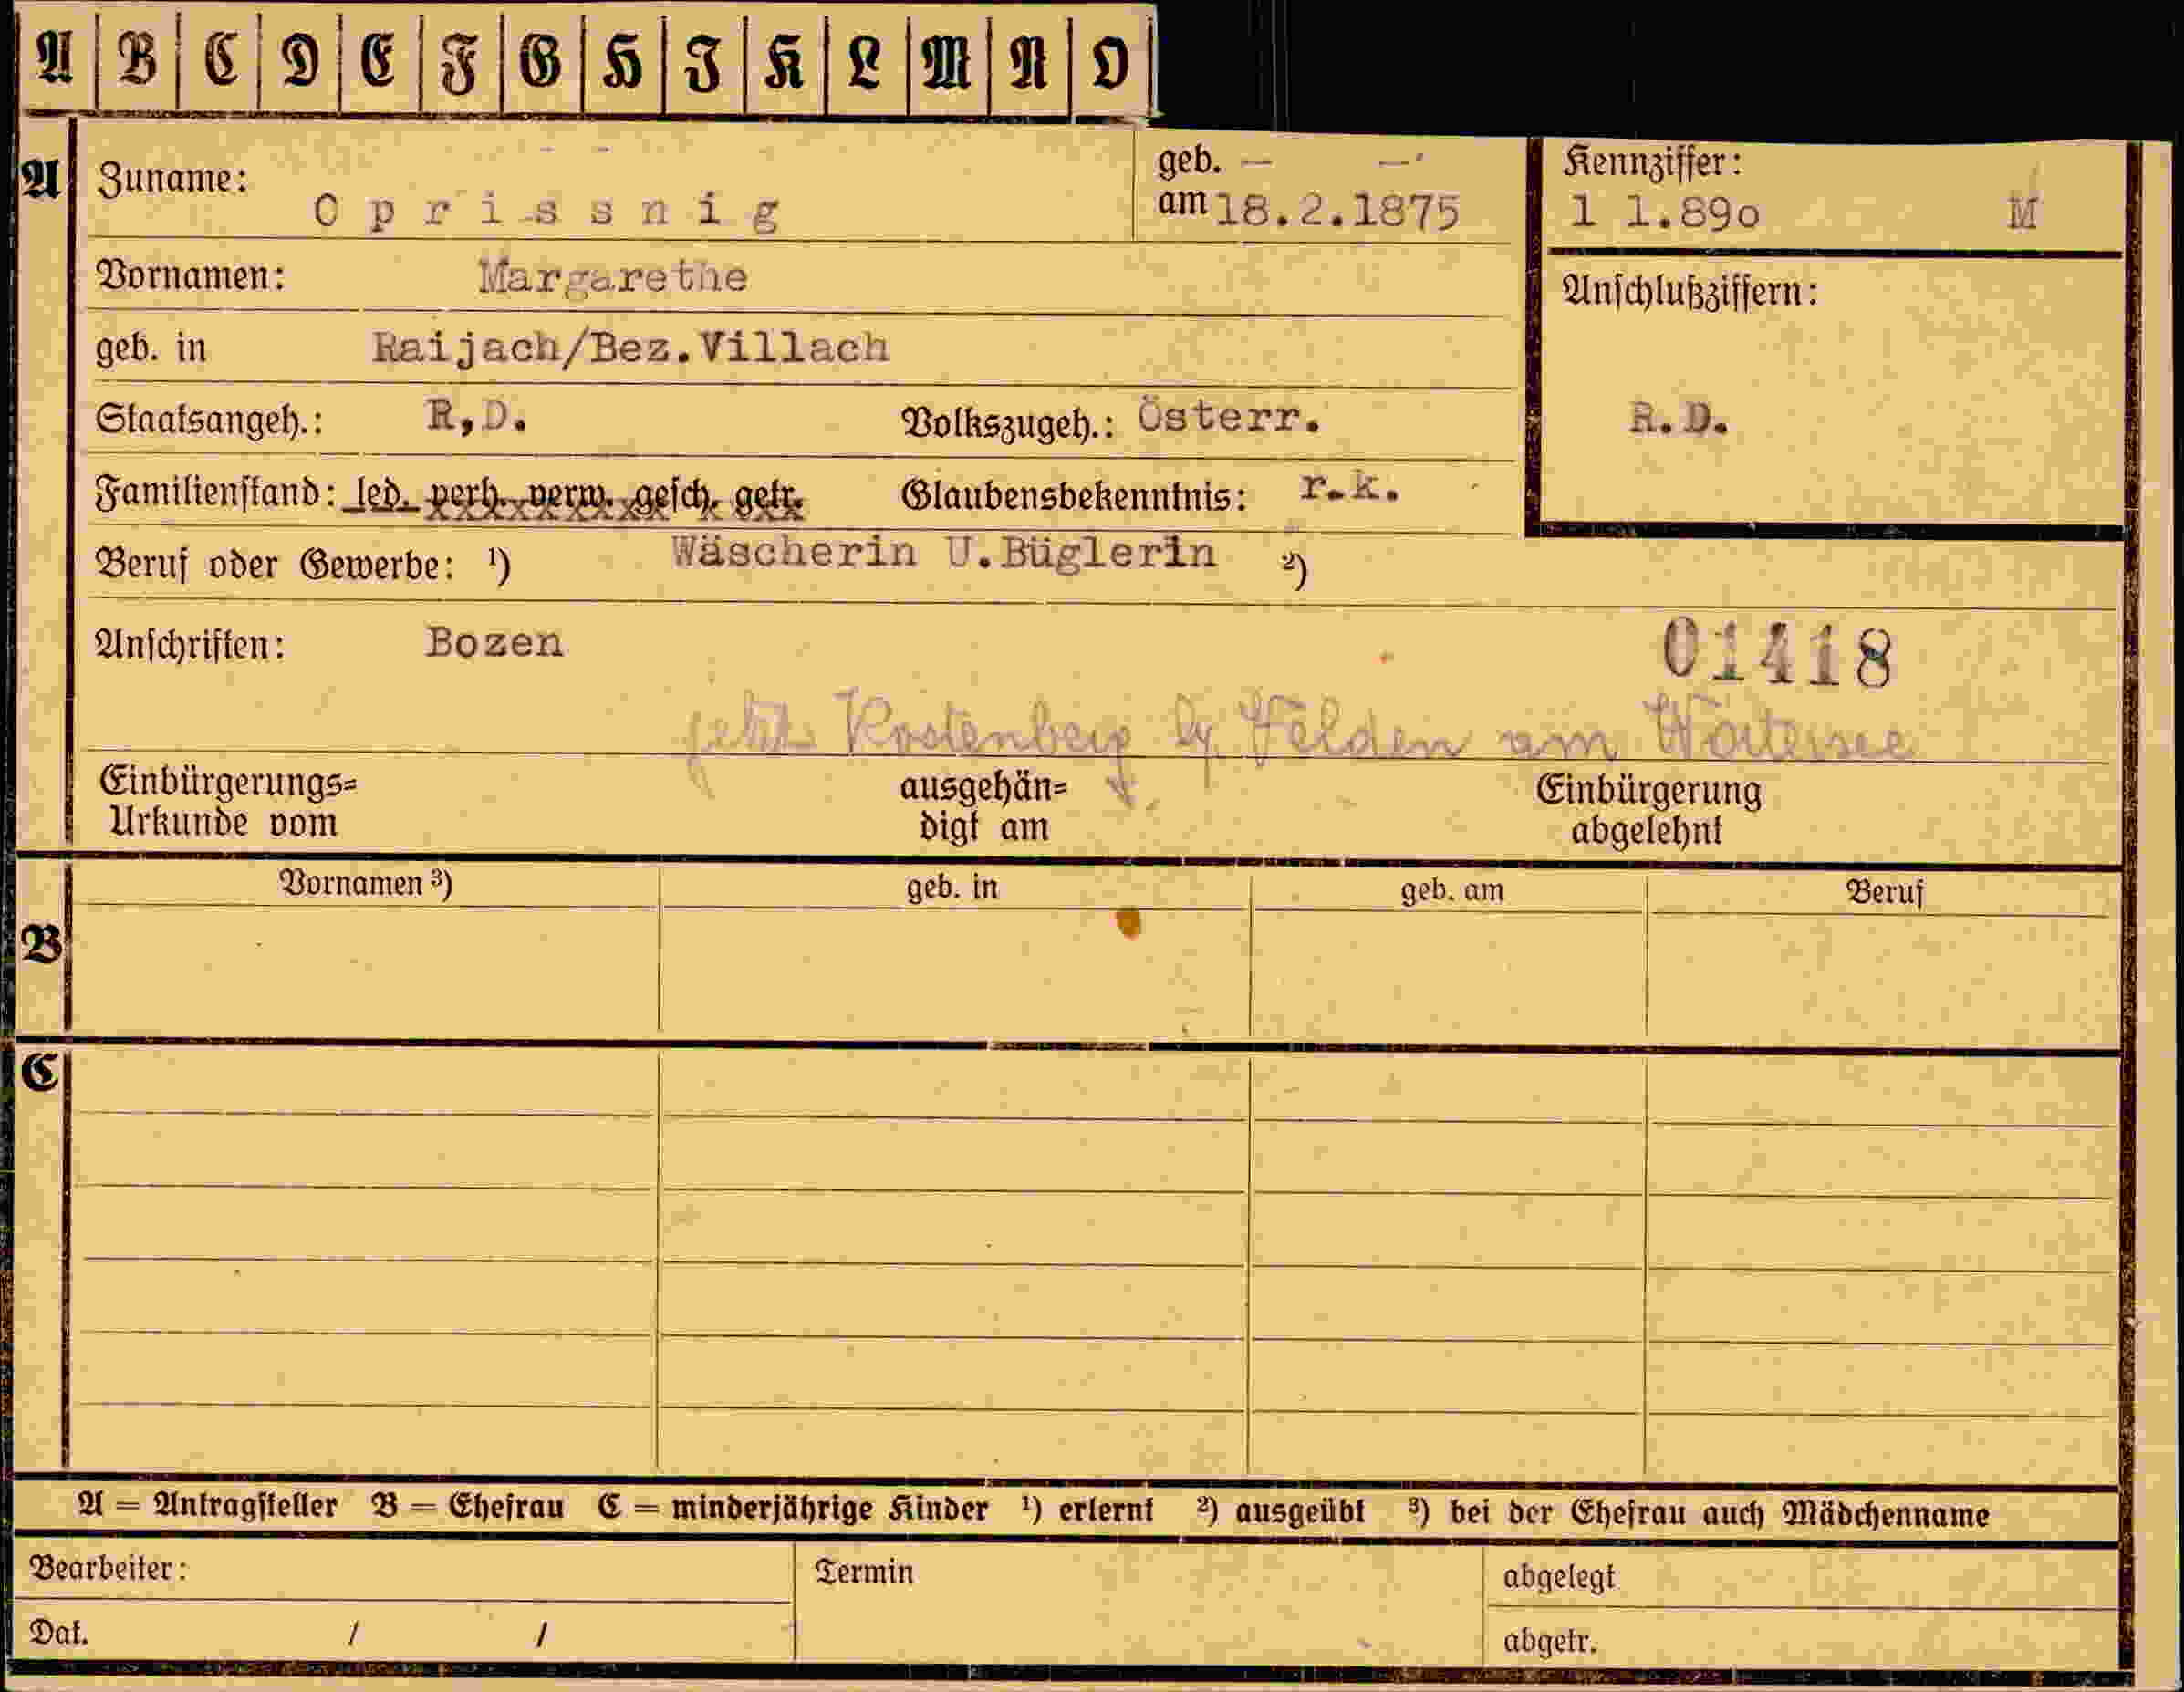 A B C D E F G H J K L M N O
A Zuname: Oprissnig geb. — —
am 18.2.1875 Kennziffer:
1 1.89o M
Vornamen: Margarethe
Anschlußziffern:
geb. in Raijach/Bez.Villach
Staatsangeh.: R,D. Volkszugeh.: Österr. R.D.
Familienstand: led. verh. verw. gesch. getr. Glaubensbekenntnis: r.k.
Beruf oder Gewerbe: ¹) Wäscherin U.Büglerin ²)
Anschriften: Bozen 01418
jetzt Kostenberg by. Velden am Wörtersee
Einbürgerungs=
Urkunde vom
ausgehän=
digt am
Einbürgerung
abgelehnt
B Vornamen ³) geb. in geb. am Beruf
C
A = Antragsteller B = Ehefrau C = minderjährige Kinder ¹) erlernt ²) ausgeübt ³) bei der Ehefrau auch Mädchenname
Bearbeiter: Termin abgelegt
Dat. / / abgetr.